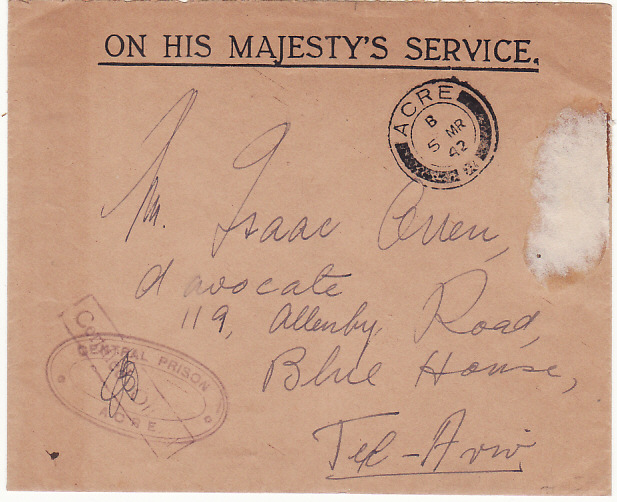 ON HIS MAJESTY'S SERVICE.
ACRE
B
5 MR
42
Mr. Isaac
d avocate
119, Allenby Road,
Blue House,
Tel-Aviv
CENTRAL PRISON
ACRE